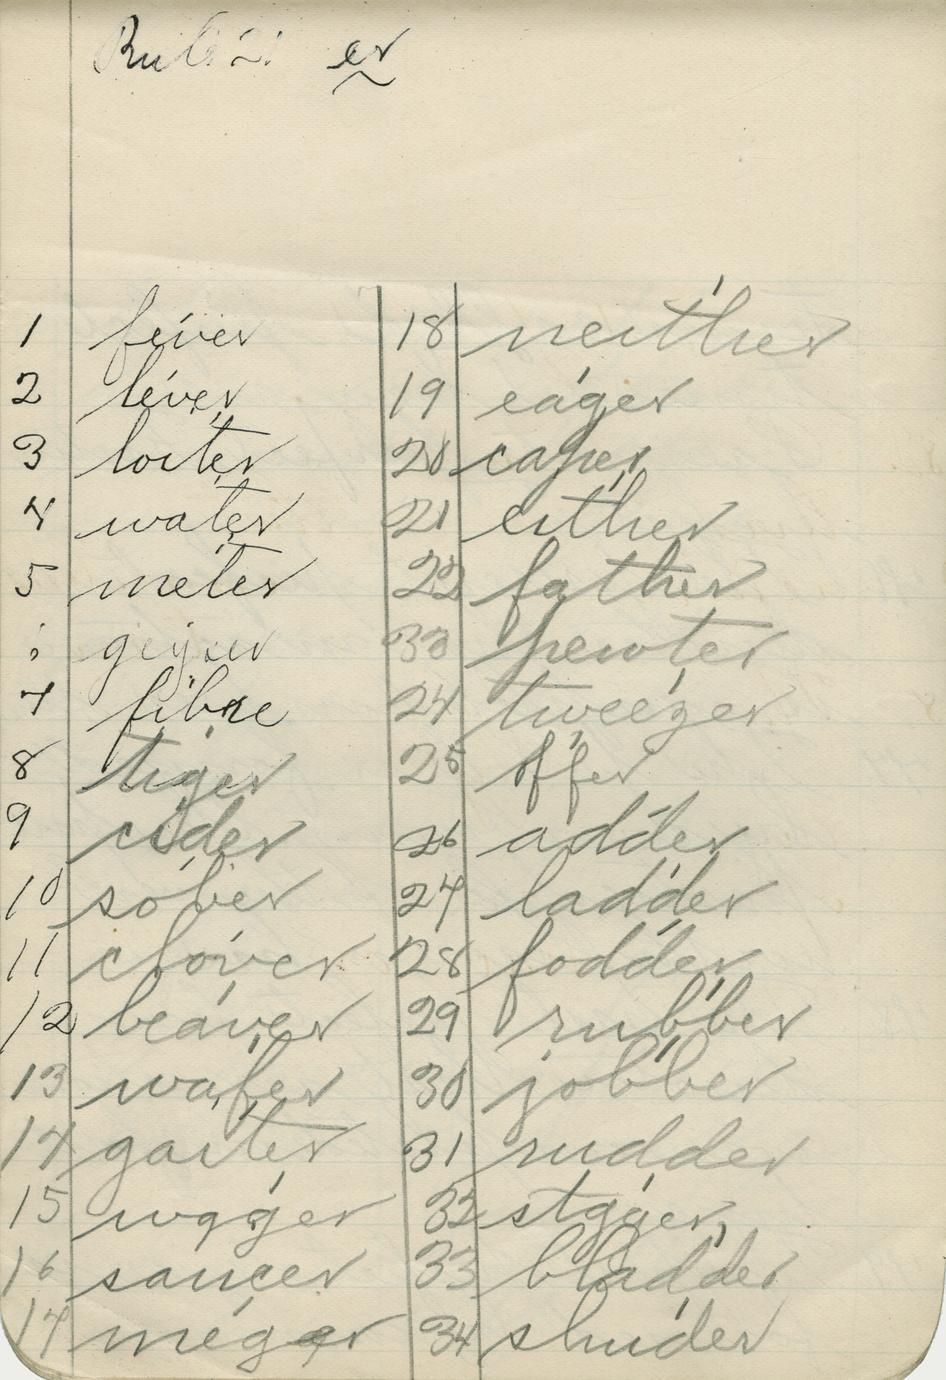 Rule 21 er
1 fever
2 lever
3 loiter
4 water
5 meter
geyser
7 fibre
8 tiger
9 cider
10 sober
11 clover
12 beaver
13 wafer
14 gaiter
15 wager
16 saucer
17 meger
18 neither
19 eager
20 caper
21 either
22 father
33 pewter
24 tweezer
25 offer
26 adder
27 ladder
28 fodder
29 rubber
30 jobber
31 rudder
32 stager
33 bladder
34 shuder